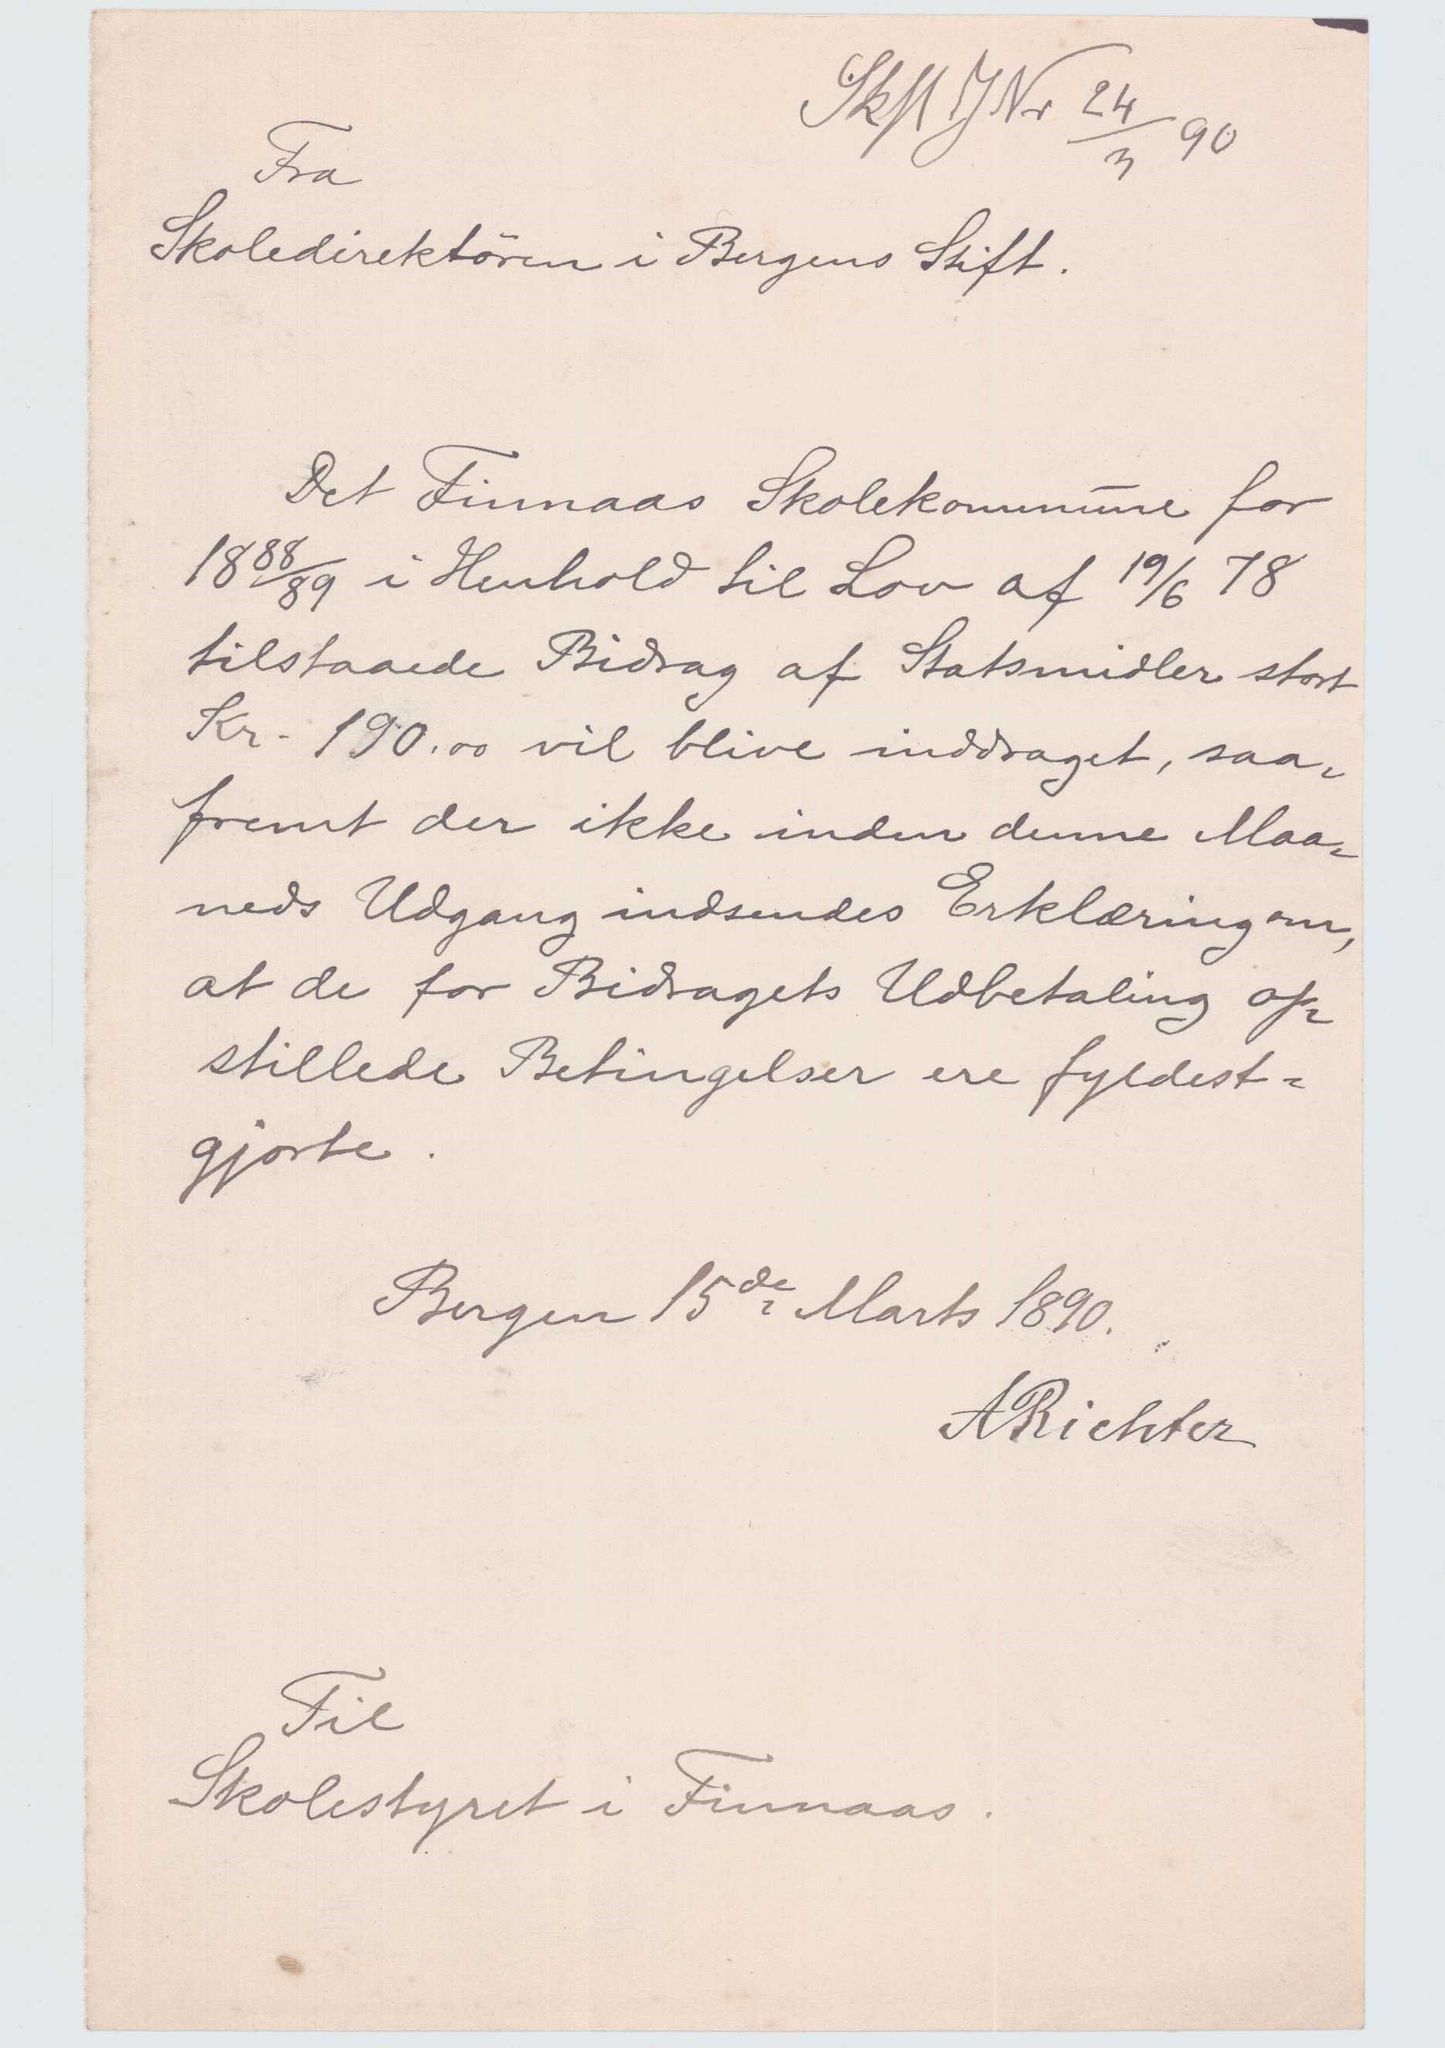 Skst J Nr 24/3 90
Fra
Skoledirektören i Bergens Stift.
Det Finnaas Skolekommune for
18 88/89 i Henhold til Lov af 19/6 78
tilstaaede Bidrag af Statsmidler stort
Kr. 190.00 vil blive inddraget, saa-
fremt der ikke inden denne Maa-
neds Udgang indsendes Erklæring om,
at de for Bidragets Udbetaling op-
stillede Betingelser ere fyldest-
gjorte.
Bergen 15de Marts 1890.
ARichter
Til
Skolestyret i Finnaas.